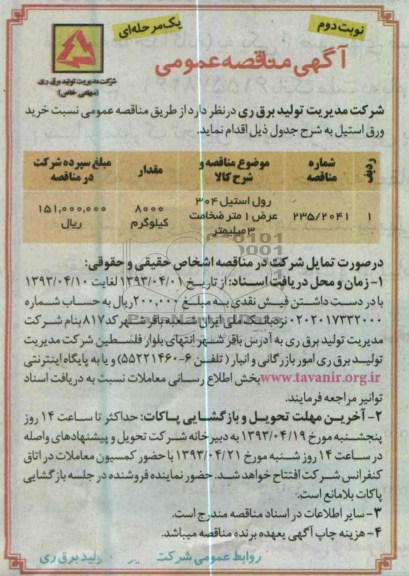 نوبت دوم
یک مرحله‌ای
آگهی مناقصه عمومی
شرکت مدیریت تولید برق ری
(سهامی خاص)
شرکت مدیریت تولید برق ری در نظر دارد از طریق مناقصه عمومی نسبت خرید
ورق استیل به شرح جدول ذیل اقدام نماید.
ردیف	شماره مناقصه	موضوع مناقصه و شرح کالا	مقدار	مبلغ سپرده شرکت در مناقصه
۱	۲۳۵/۲۰۴۱	رول استیل ۳۰۴ عرض ۱ متر ضخامت ۳ میلیمتر	۸۰۰۰ کیلوگرم	۱۵۱,۰۰۰,۰۰۰ ریال
درصورت تمایل شرکت در مناقصه اشخاص حقیقی و حقوقی:
۱- زمان و محل دریافت اسناد: از تاریخ ۱۳۹۳/۰۴/۰۱ لغایت ۱۳۹۳/۰۴/۱۰
با در دست داشتن فیش نقدی به مبلغ ۲۰۰,۰۰۰ ریال به حساب شماره
۰۲۰۲۰۱۷۳۳۲۰۰۰ نزد بانک ملی ایران شعبه باقرشهر کد ۸۱۷ بنام شرکت
مدیریت تولید برق ری به آدرس باقرشهر انتهای بلوار فلسطین شرکت مدیریت
تولید برق ری امور بازرگانی و انبار ( تلفن ۶-۵۵۲۲۱۴۶۰) و یا به پایگاه اینترنتی
www.tavanir.org.ir بخش اطلاع رسانی معاملات نسبت به دریافت اسناد
توانیر مراجعه فرمایند.
۲- آخرین مهلت تحویل و بازگشایی پاکات: حداکثر تا ساعت ۱۴ روز
پنجشنبه مورخ ۱۳۹۳/۰۴/۱۹ به دبیرخانه شرکت تحویل و پیشنهادهای واصله
در ساعت ۱۴ روز شنبه مورخ ۱۳۹۳/۰۴/۲۱ با حضور کمسیون معاملات در اتاق
کنفرانس شرکت افتتاح خواهد شد. حضور نماینده فروشنده در جلسه بازگشایی
پاکات بلامانع است.
۳- سایر اطلاعات در اسناد مناقصه مندرج است.
۴- هزینه چاپ آگهی بعهده برنده مناقصه میباشد.
روابط عمومی شرکت تولید برق ری